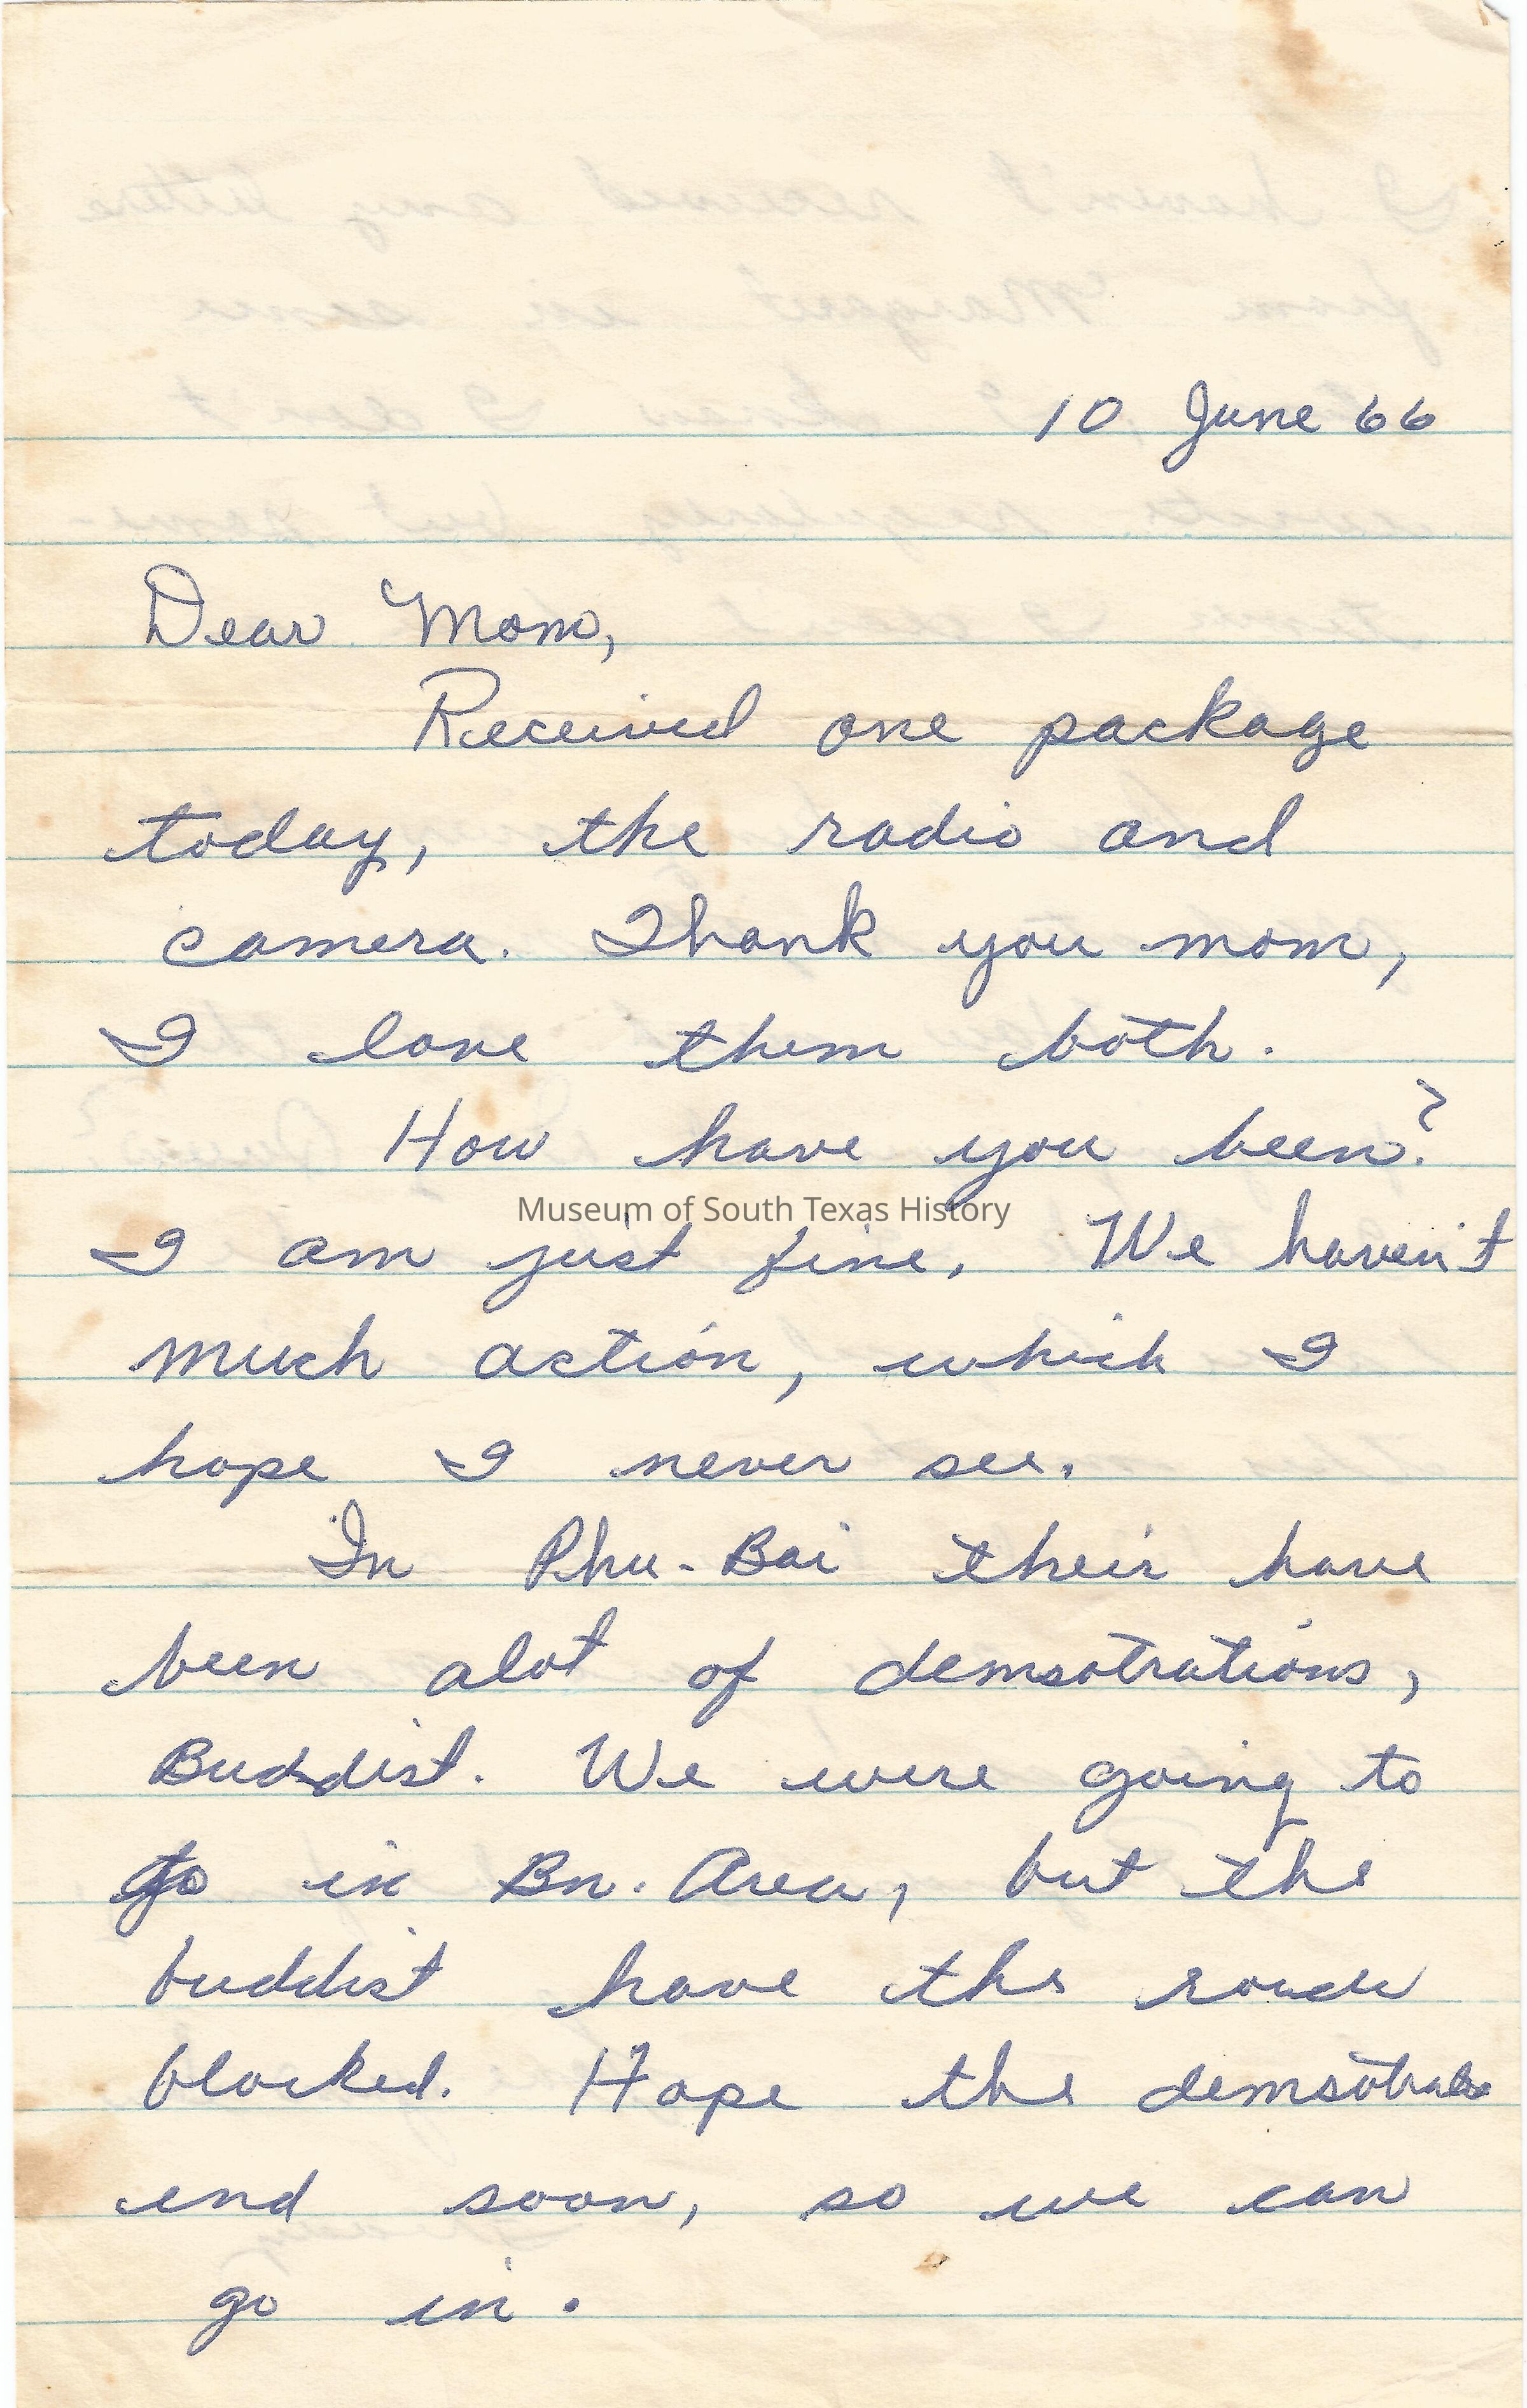 10 June 66
Dear Mom,
Received one package
today, the radio and
camera. Thank you mom,
I love them both.
How have you been?
Museum of South Texas History
I am just fine. We haven't
much action, which I
hope I never see.
In Phu-Bai their have
been alot of demsotrations,
Buddist. We were going to
go in Bn. Area, but the
buddist have the
blocked. Hope the
end soon, so we can
go in.